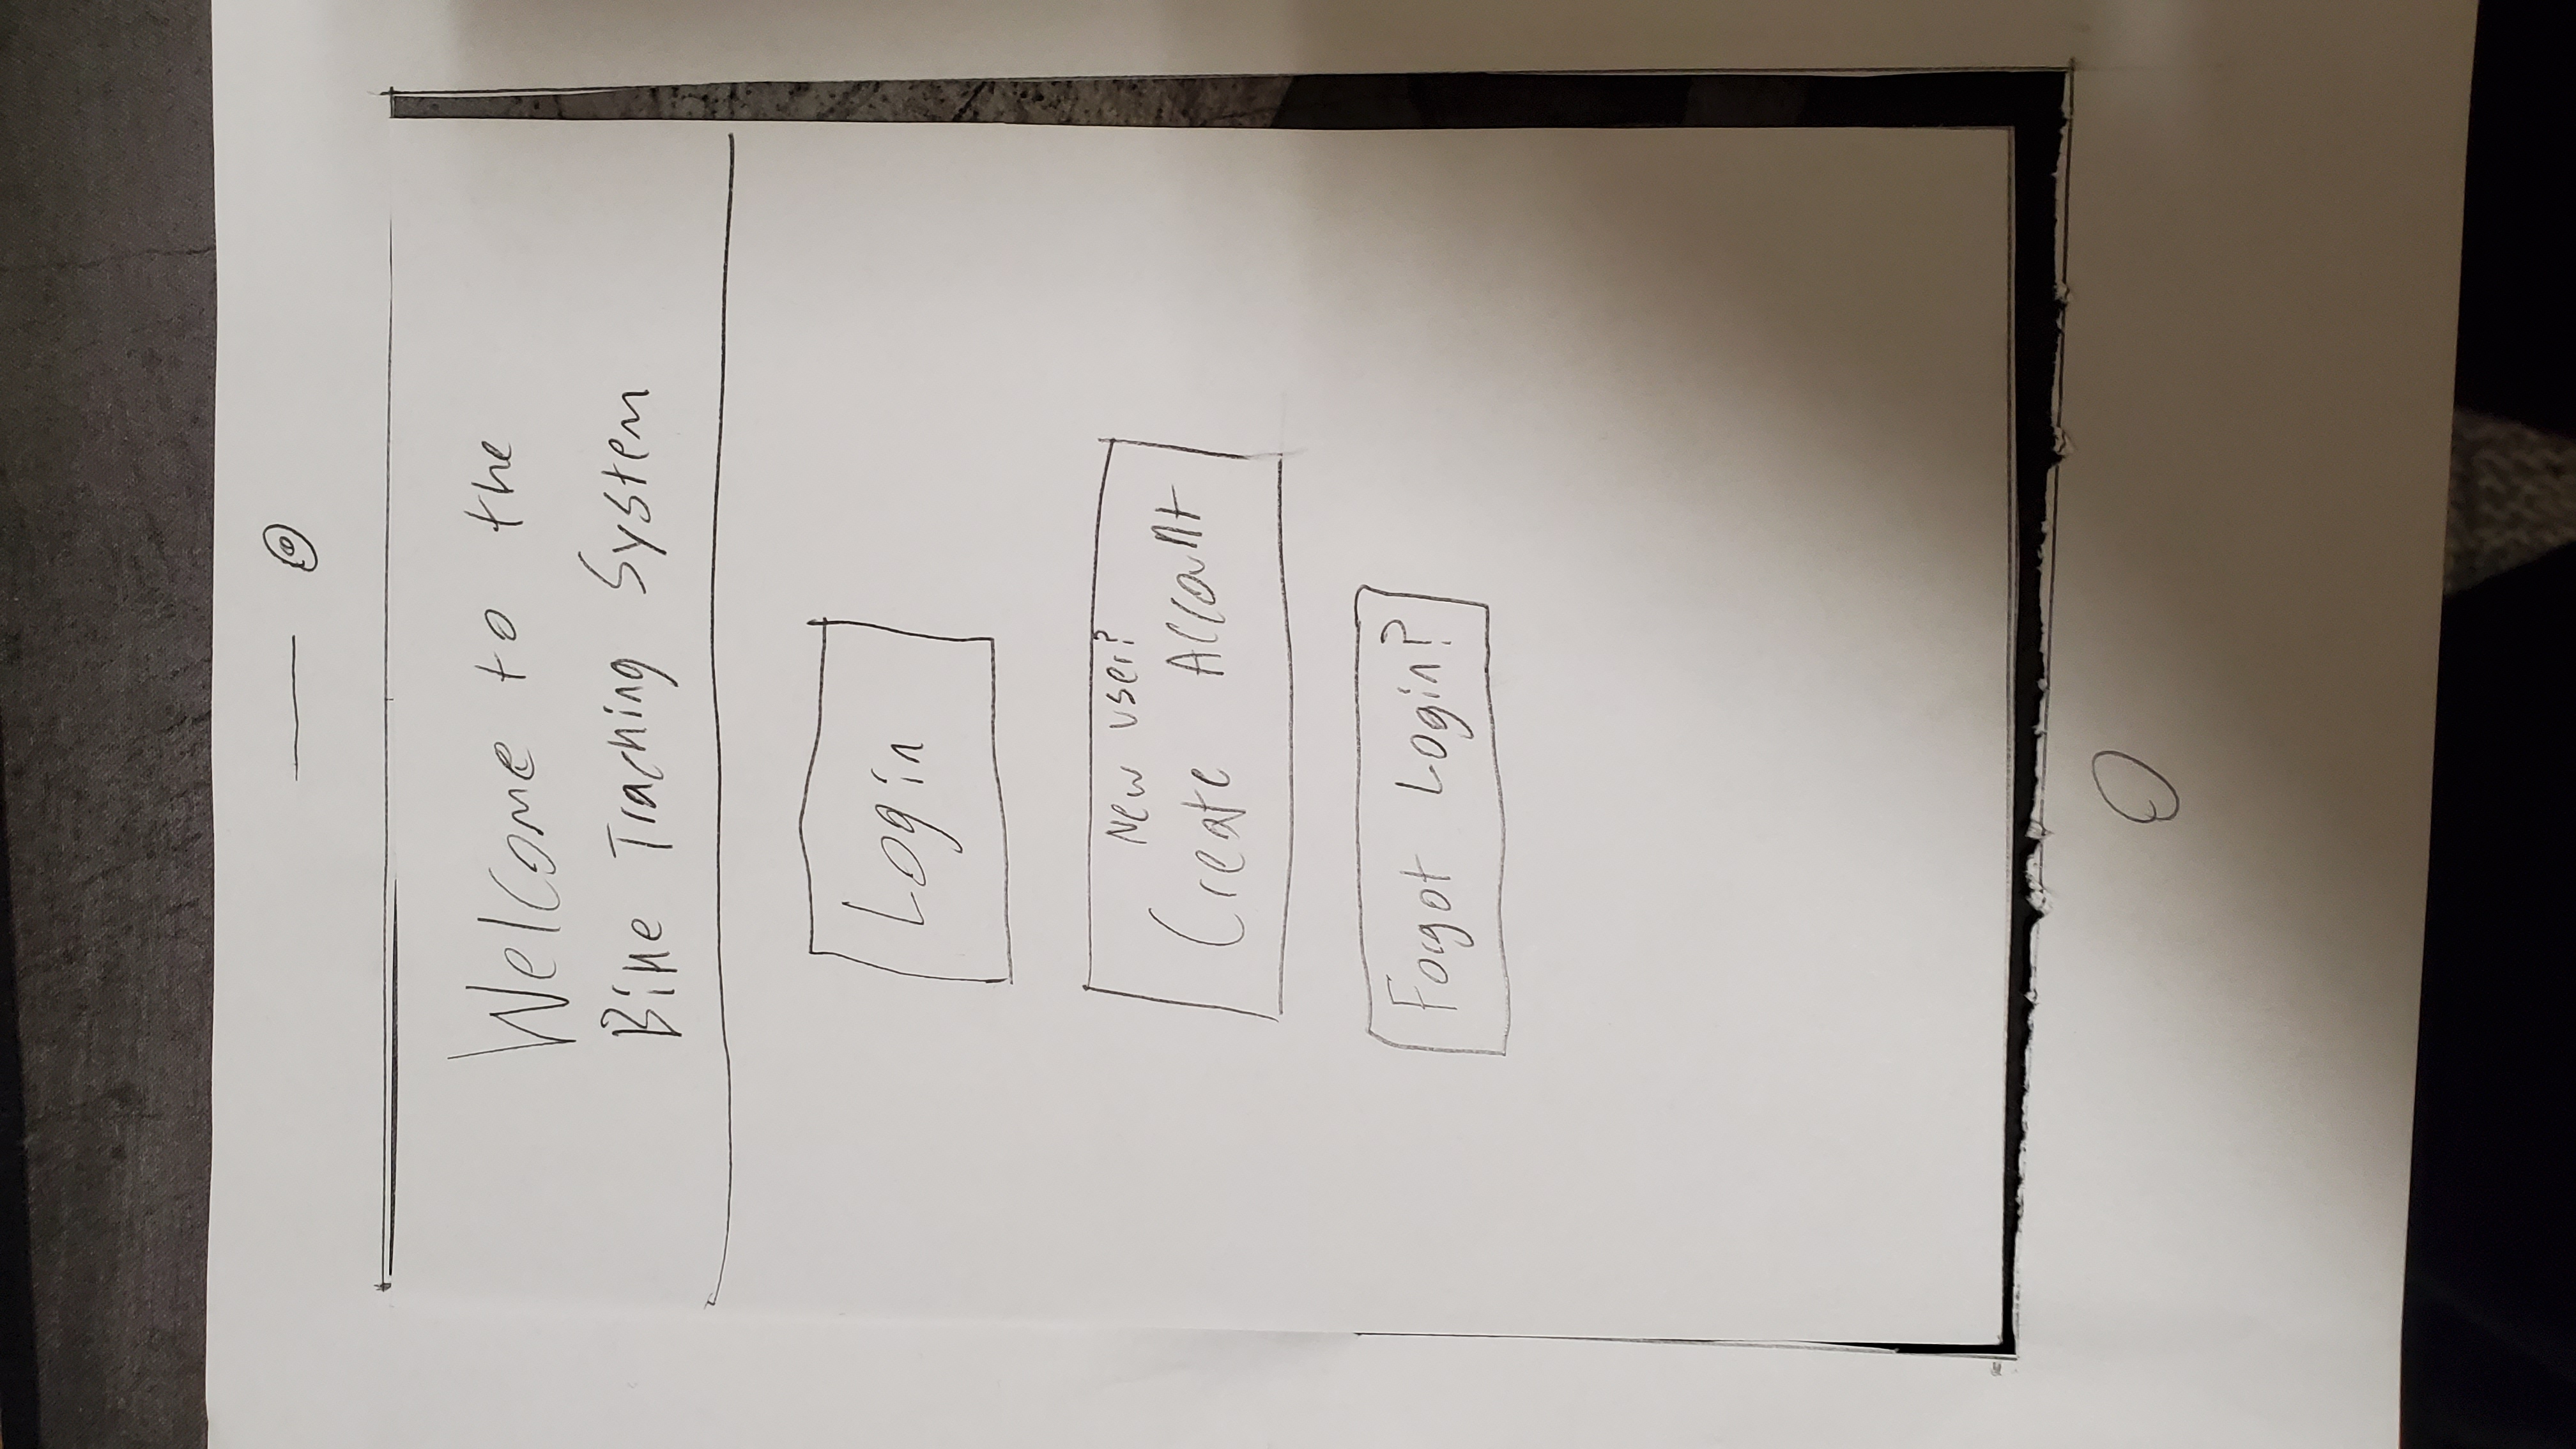 Welcome to the
Bike Tracking System
Login
New user?
Create Account
Forgot Login?